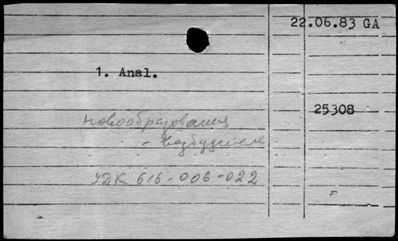 22.06.83 GA
1. Anal.
25308
новообразования
- возбудители
УДК 616-006-022